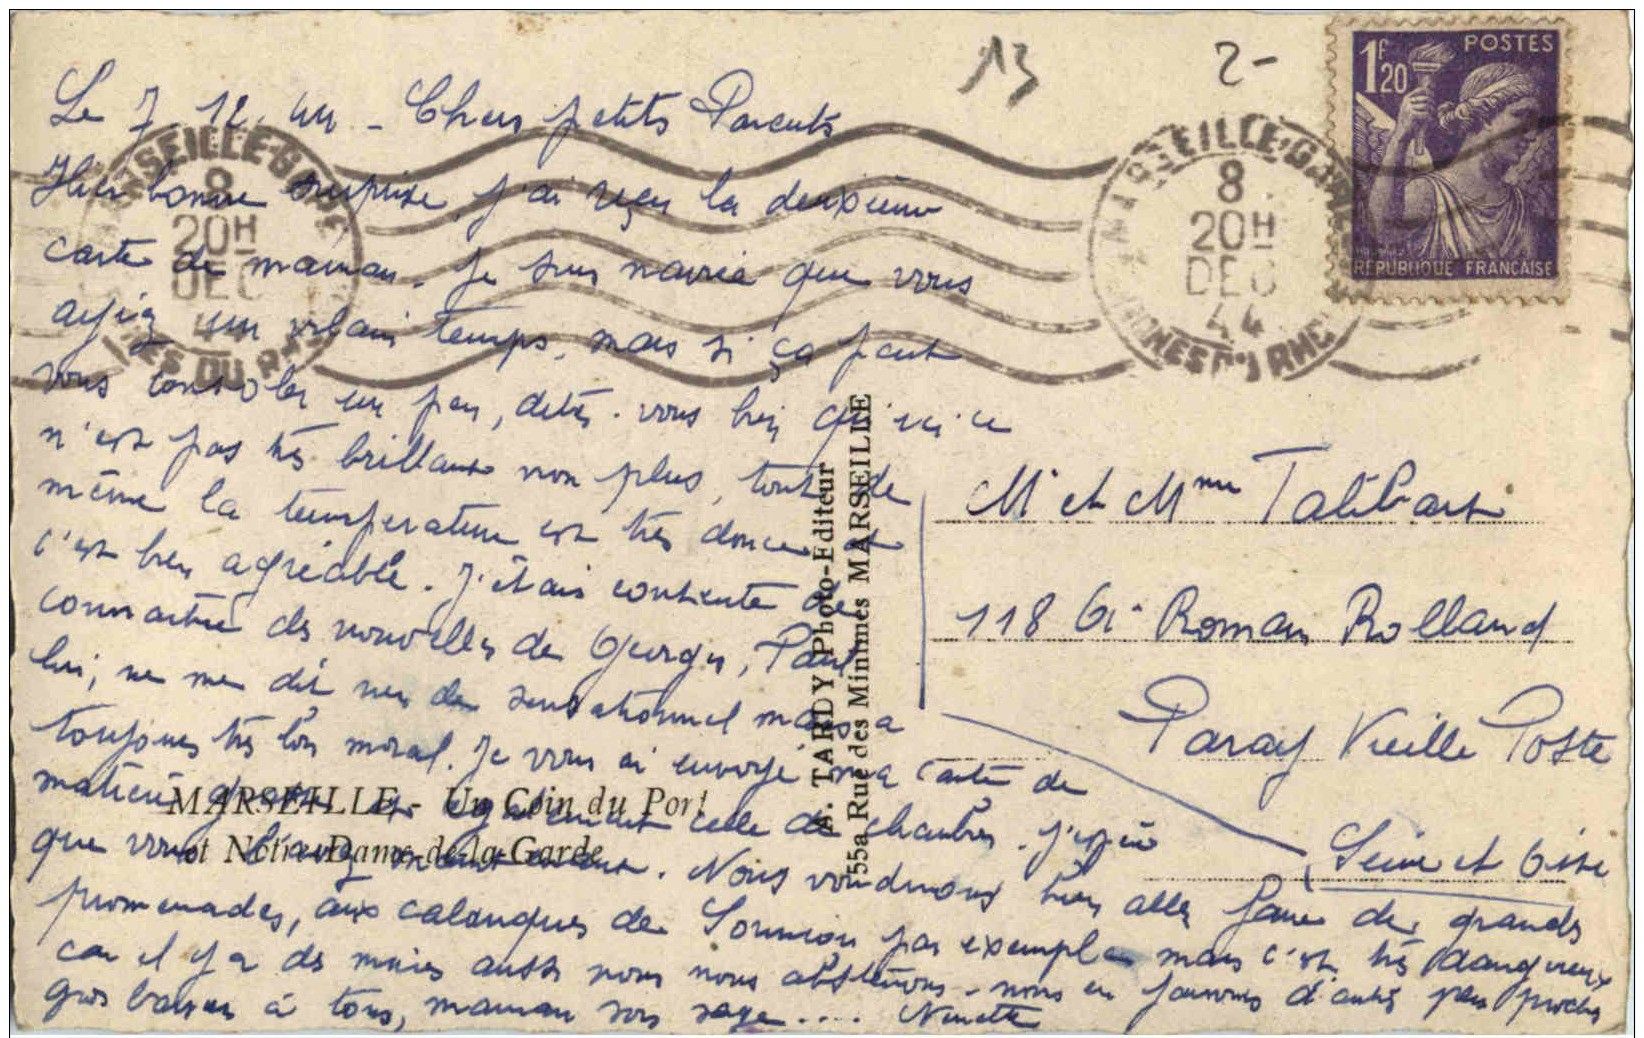 13
2-
1F20
POSTES
RÉPUBLIQUE FRANÇAISE
MARSEILLE-GARE
8
20H
DEC
44
BOUCHES DU RHONE
MARSEILLE-GARE
8
20H
DEC
44
BOUCHES DU RHONE
Le 7-12-44 - Chers petits Parents
Hier bonne surprise, j'ai reçu la deuxième
carte de maman. Je suis navrée que vous
ayiez un vilain temps, mais si ça peut
vous consoler un peu, dites-vous bien qu'ici ce
n'est pas très brillant non plus, tout de
même la température est très douce et
c'est bien agréable. J'étais contente de
connaître des nouvelles de Georges, Paul
lui, ne me dit rien de sensationnel mais a
toujours très bon moral. Je vous ai envoyé ma carte de
matière grasse et également celle de charbon. J'espère
que vous l'avez maintenant. Nous voudrions bien aller faire de grandes
promenades, aux calanques de Sormiou par exemple mais c'est très dangereux
car il y a des mines aussi nous nous abstenons - nous en faisons d'autres plus proches
gros baisers à tous, maman sois sage.... Nénette
MARSEILLE - Un Coin du Port
et Notre-Dame-de-la-Garde
TARDY Photo-Editeur
55a Rue des Minimes MARSEILLE
Mr et Mme Talibart
118 Romain Rolland
Paray Vieille Poste
(Seine et Oise